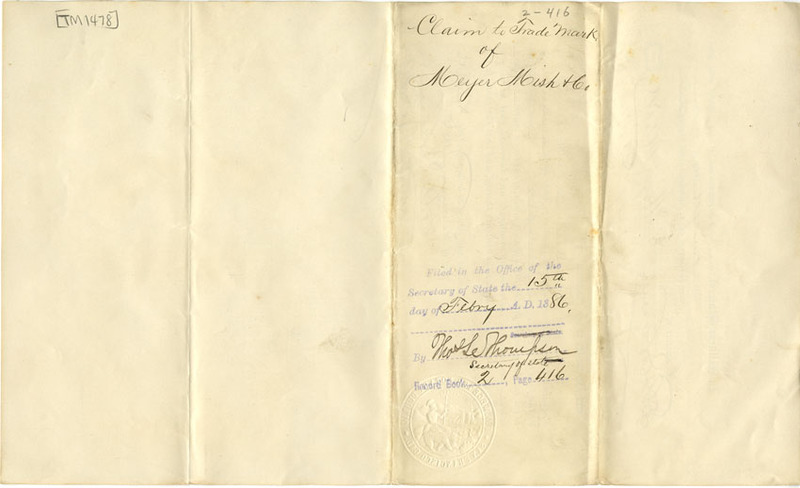 [TM1478]
2-416
Claim to Trade Mark
of
Meyer Mish & Co.
Filed in the Office of the
Secretary of State the 15th
day of Febry A. D. 1886,
By Thos L Thompson
Secretary of State
Record Book 2, Page 416